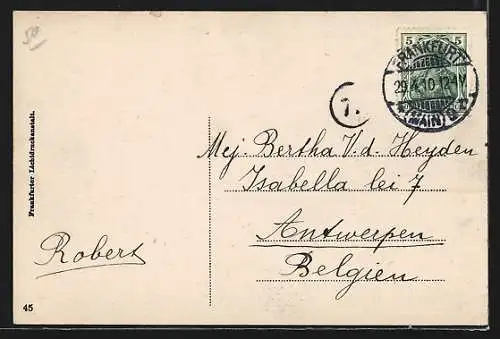 50
5 5
FRANKFURT
29.4.10.12-1V
(MAIN) 9
1.
Mej. Bertha V.d. Heyden
Isabella lei 7
Antwerpen
Belgien
Robert
Frankfurter Lichtdruckanstalt.
45